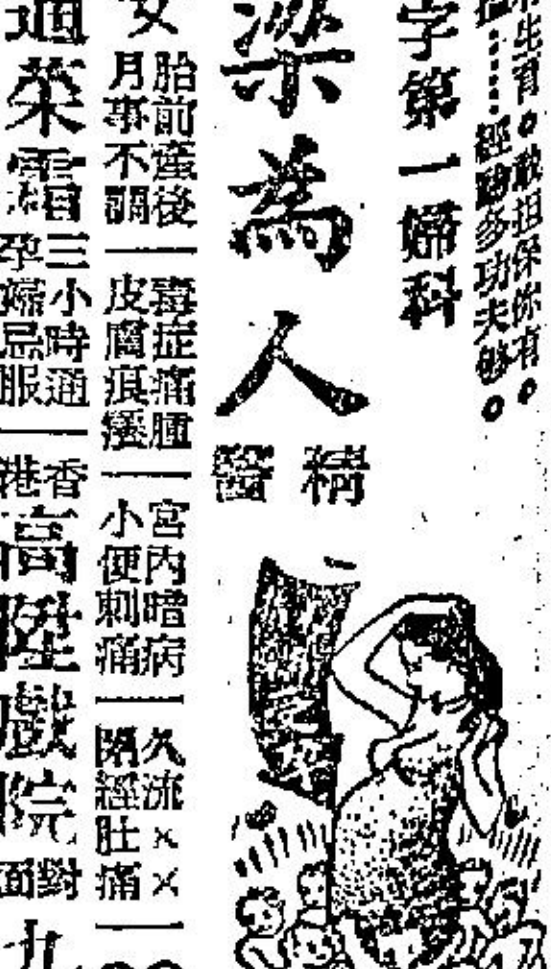 生育。敢担保你有。
……經驗多功夫夠。
字第一婦科
梁為人
精醫
女
胎前產後
月事不調
毒症痛腫
皮膚痕癢
宮內暗病
小便刺痛
久流××
閉經肚痛
三小時通
孕婦忌服
香港
高陞戲院
對面
九